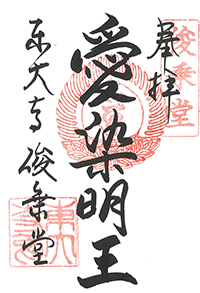 奉拝
俊乗堂
愛染明王
東大寺 俊乗堂